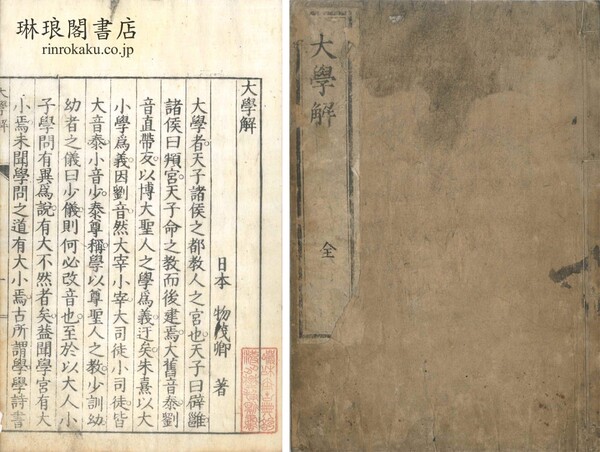 琳琅閣書店
rinrokaku.co.jp
大學解
日本 物茂卿 著
大學者天子諸侯之都教人之宮也天子曰辟雝
諸侯曰頖宮天子命之教而後建焉大舊音泰劉
音直帶反以博大聖人之學爲義迂矣朱熹以大
小學爲義因劉音然大宰小宰大司徒小司徒皆
大音泰小音少泰尊稱學以尊聖人之教少訓幼
幼者之儀曰少儀則何必改音也至於以大人小
子學問有異爲說有大不然者矣蓋聞學宮有大
小焉未聞學問之道有大小焉古所謂學學詩書
大學解
大學解
全